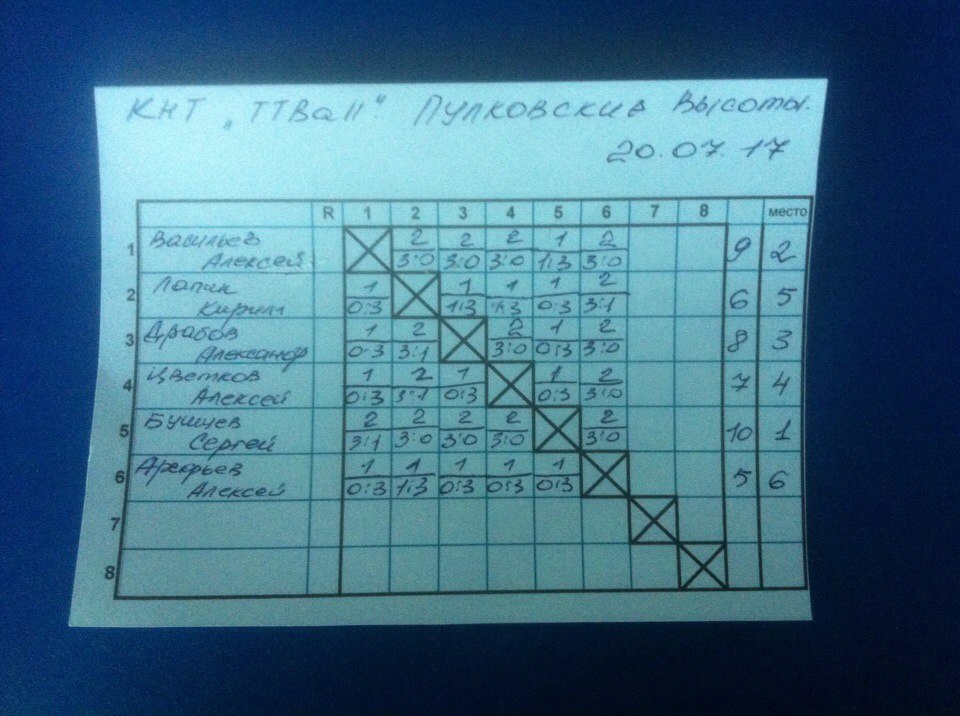 КНТ „ТТВан“ Пулковские Высоты.
20.07.17
R 1 2 3 4 5 6 7 8 место
1 Васильев Алексей 2 3:0 2 3:0 2 3:0 1 1:3 2 3:0 9 2
2 Лапин Кирилл 1 0:3 1 1:3 1 1:3 1 0:3 2 3:1 6 5
3 Драбов Александр 1 0:3 2 3:1 2 3:0 1 0:3 2 3:0 8 3
4 Цветков Алексей 1 0:3 2 3:1 1 0:3 1 0:3 2 3:0 7 4
5 Бушуев Сергей 2 3:1 2 3:0 2 3:0 2 3:0 2 3:0 10 1
6 Алексей 1 0:3 1 1:3 1 0:3 1 0:3 1 0:3 5 6
7
8